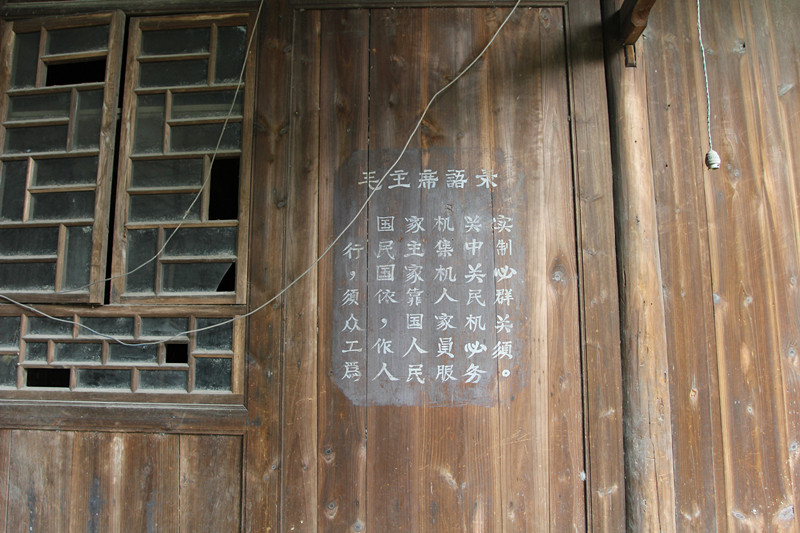 毛主席語录
国家机关实
行民主集中制
，国家机关必
须依靠人民群
众，国家机关
工作人員必须
為人民服务。